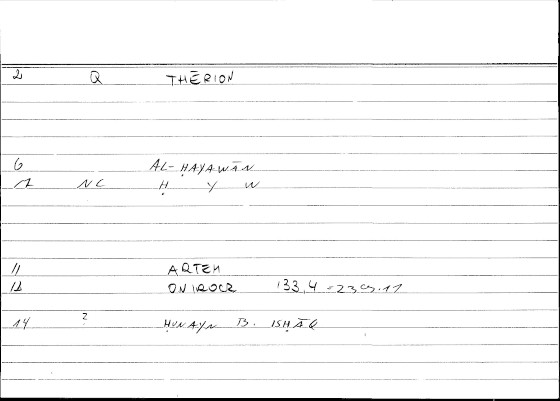 2 Q THĒRION
6 AL-ḤAYAWĀN
12 NC Ḥ Y W
11 ARTEM
12 ONIROCR 133.4 = 239.11
14 ? ḤUNAYN B. ISḤĀQ